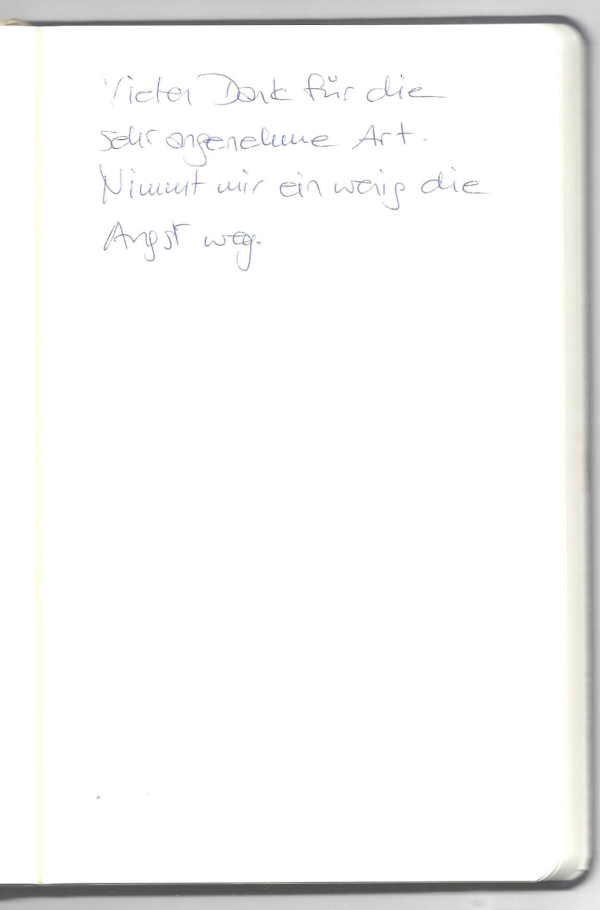 Vielen Dank für die
sehr angenehme Art.
Nimmt mir ein wenig die
Angst weg.